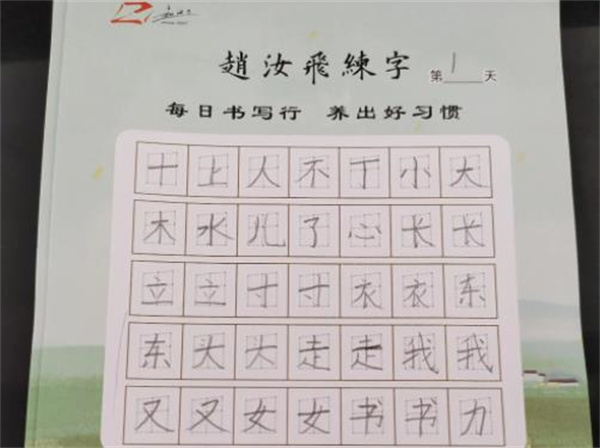 趙汝飛練字 第1天
每日书写行 养出好习惯
十上人不丁小大
木水儿了心长长
立立寸寸衣衣东
东头头走走我我
又又女女书书力